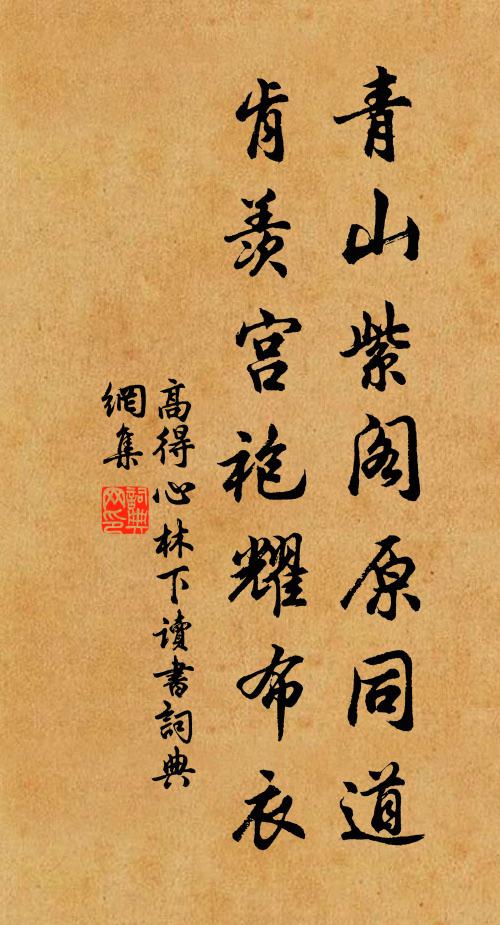 青山紫阁原同道
肯羡宫袍耀布衣
高得心林下讀書詞典
網集
詞典网印